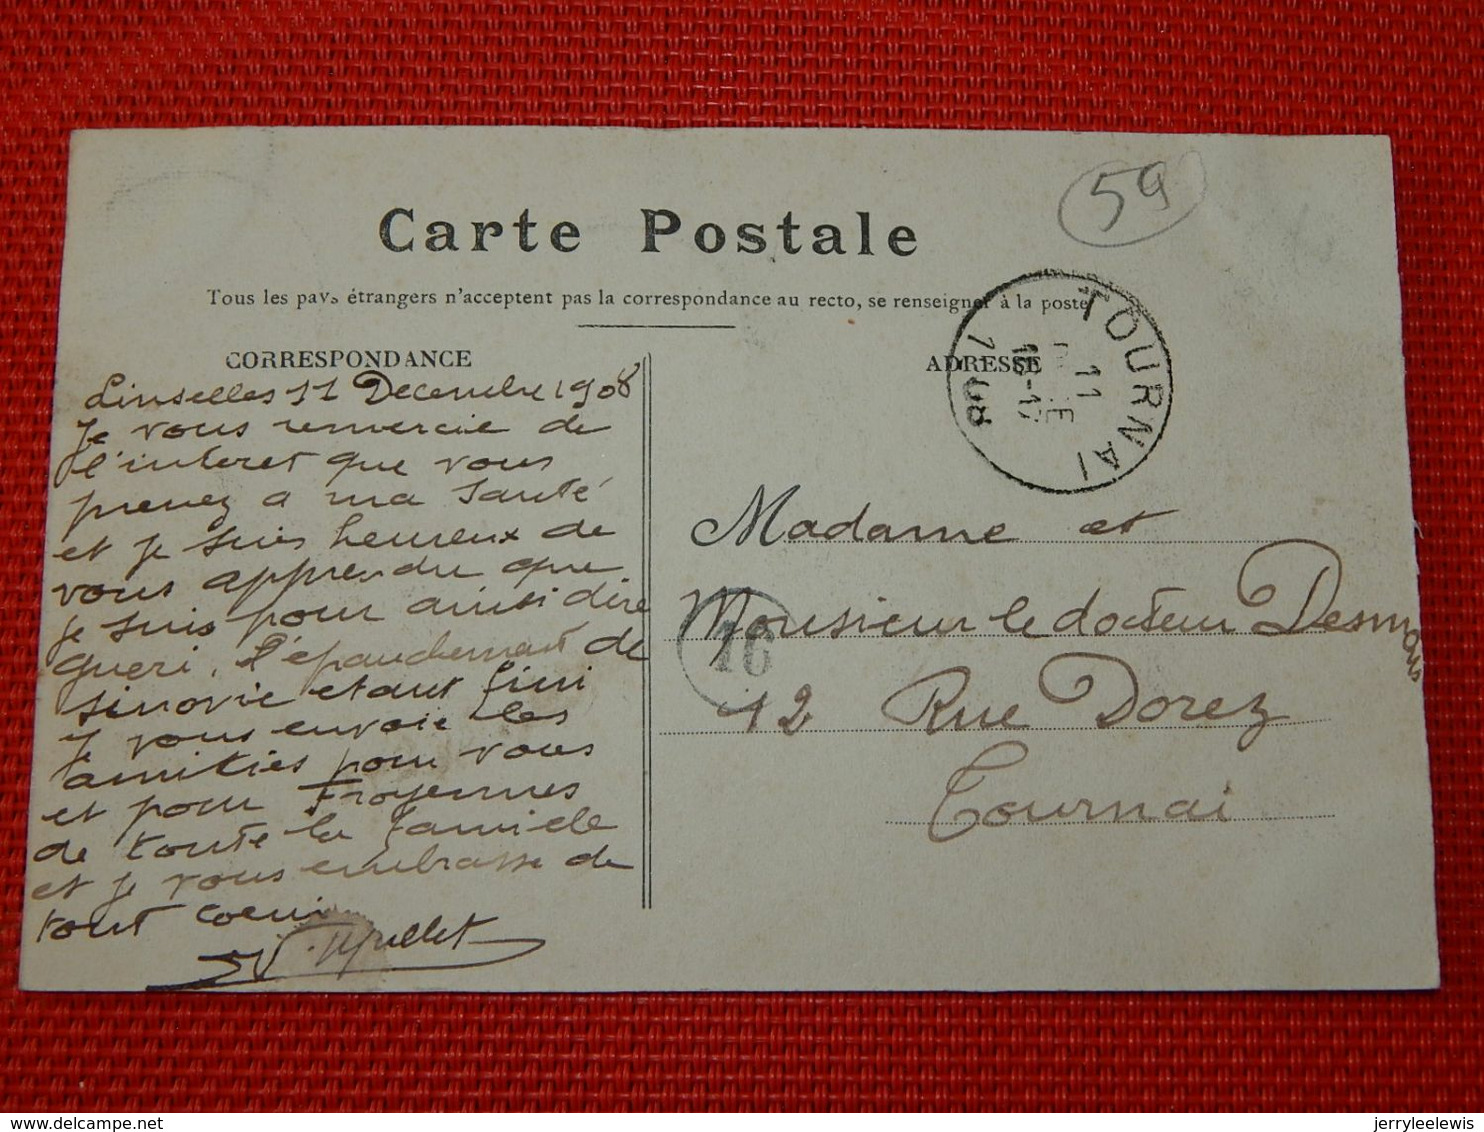 59
Carte Postale
Tous les pays étrangers n'acceptent pas la correspondance au recto, se renseigner à la poste
CORRESPONDANCE
Linselles 11 Decembre 1908
Je vous remercie de
l'interet que vous
prenez a ma santé
et je suis heureux de
vous apprendre que
je suis pour ainsi dire
gueri. L'épanchement de
sinovie etant fini
Je vous envoie les
amitiés pour vous
et pour Froyennes
de toute la famille
et je vous embrasse de
tout coeur
ADRESSE
TOURNAI
11
1908
Madame et
Monsieur le docteur Desmons
16
12 Rue Dorez
Tournai
delcampe.net
jerryleelewis